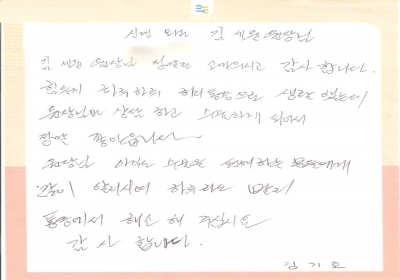 신경외과 김세윤 원장님
김세윤 원장님 정말로 고마우시고 감사합니다.
힘들게 하루하루 허리통증으로 생활 했는데
원장님과 상담 하고 수술하게 되어서
정말 좋아졌습니다
원장님 아직도 수술을 하는 분들에게
많이 알리시여 하루라도 빨리
통증에서 해소 해 주십시요
감사 합니다.
김기호